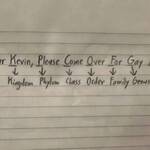 r Kevin, Please Come Over For Gay
Kingdom Phylum Class Order Family Genus